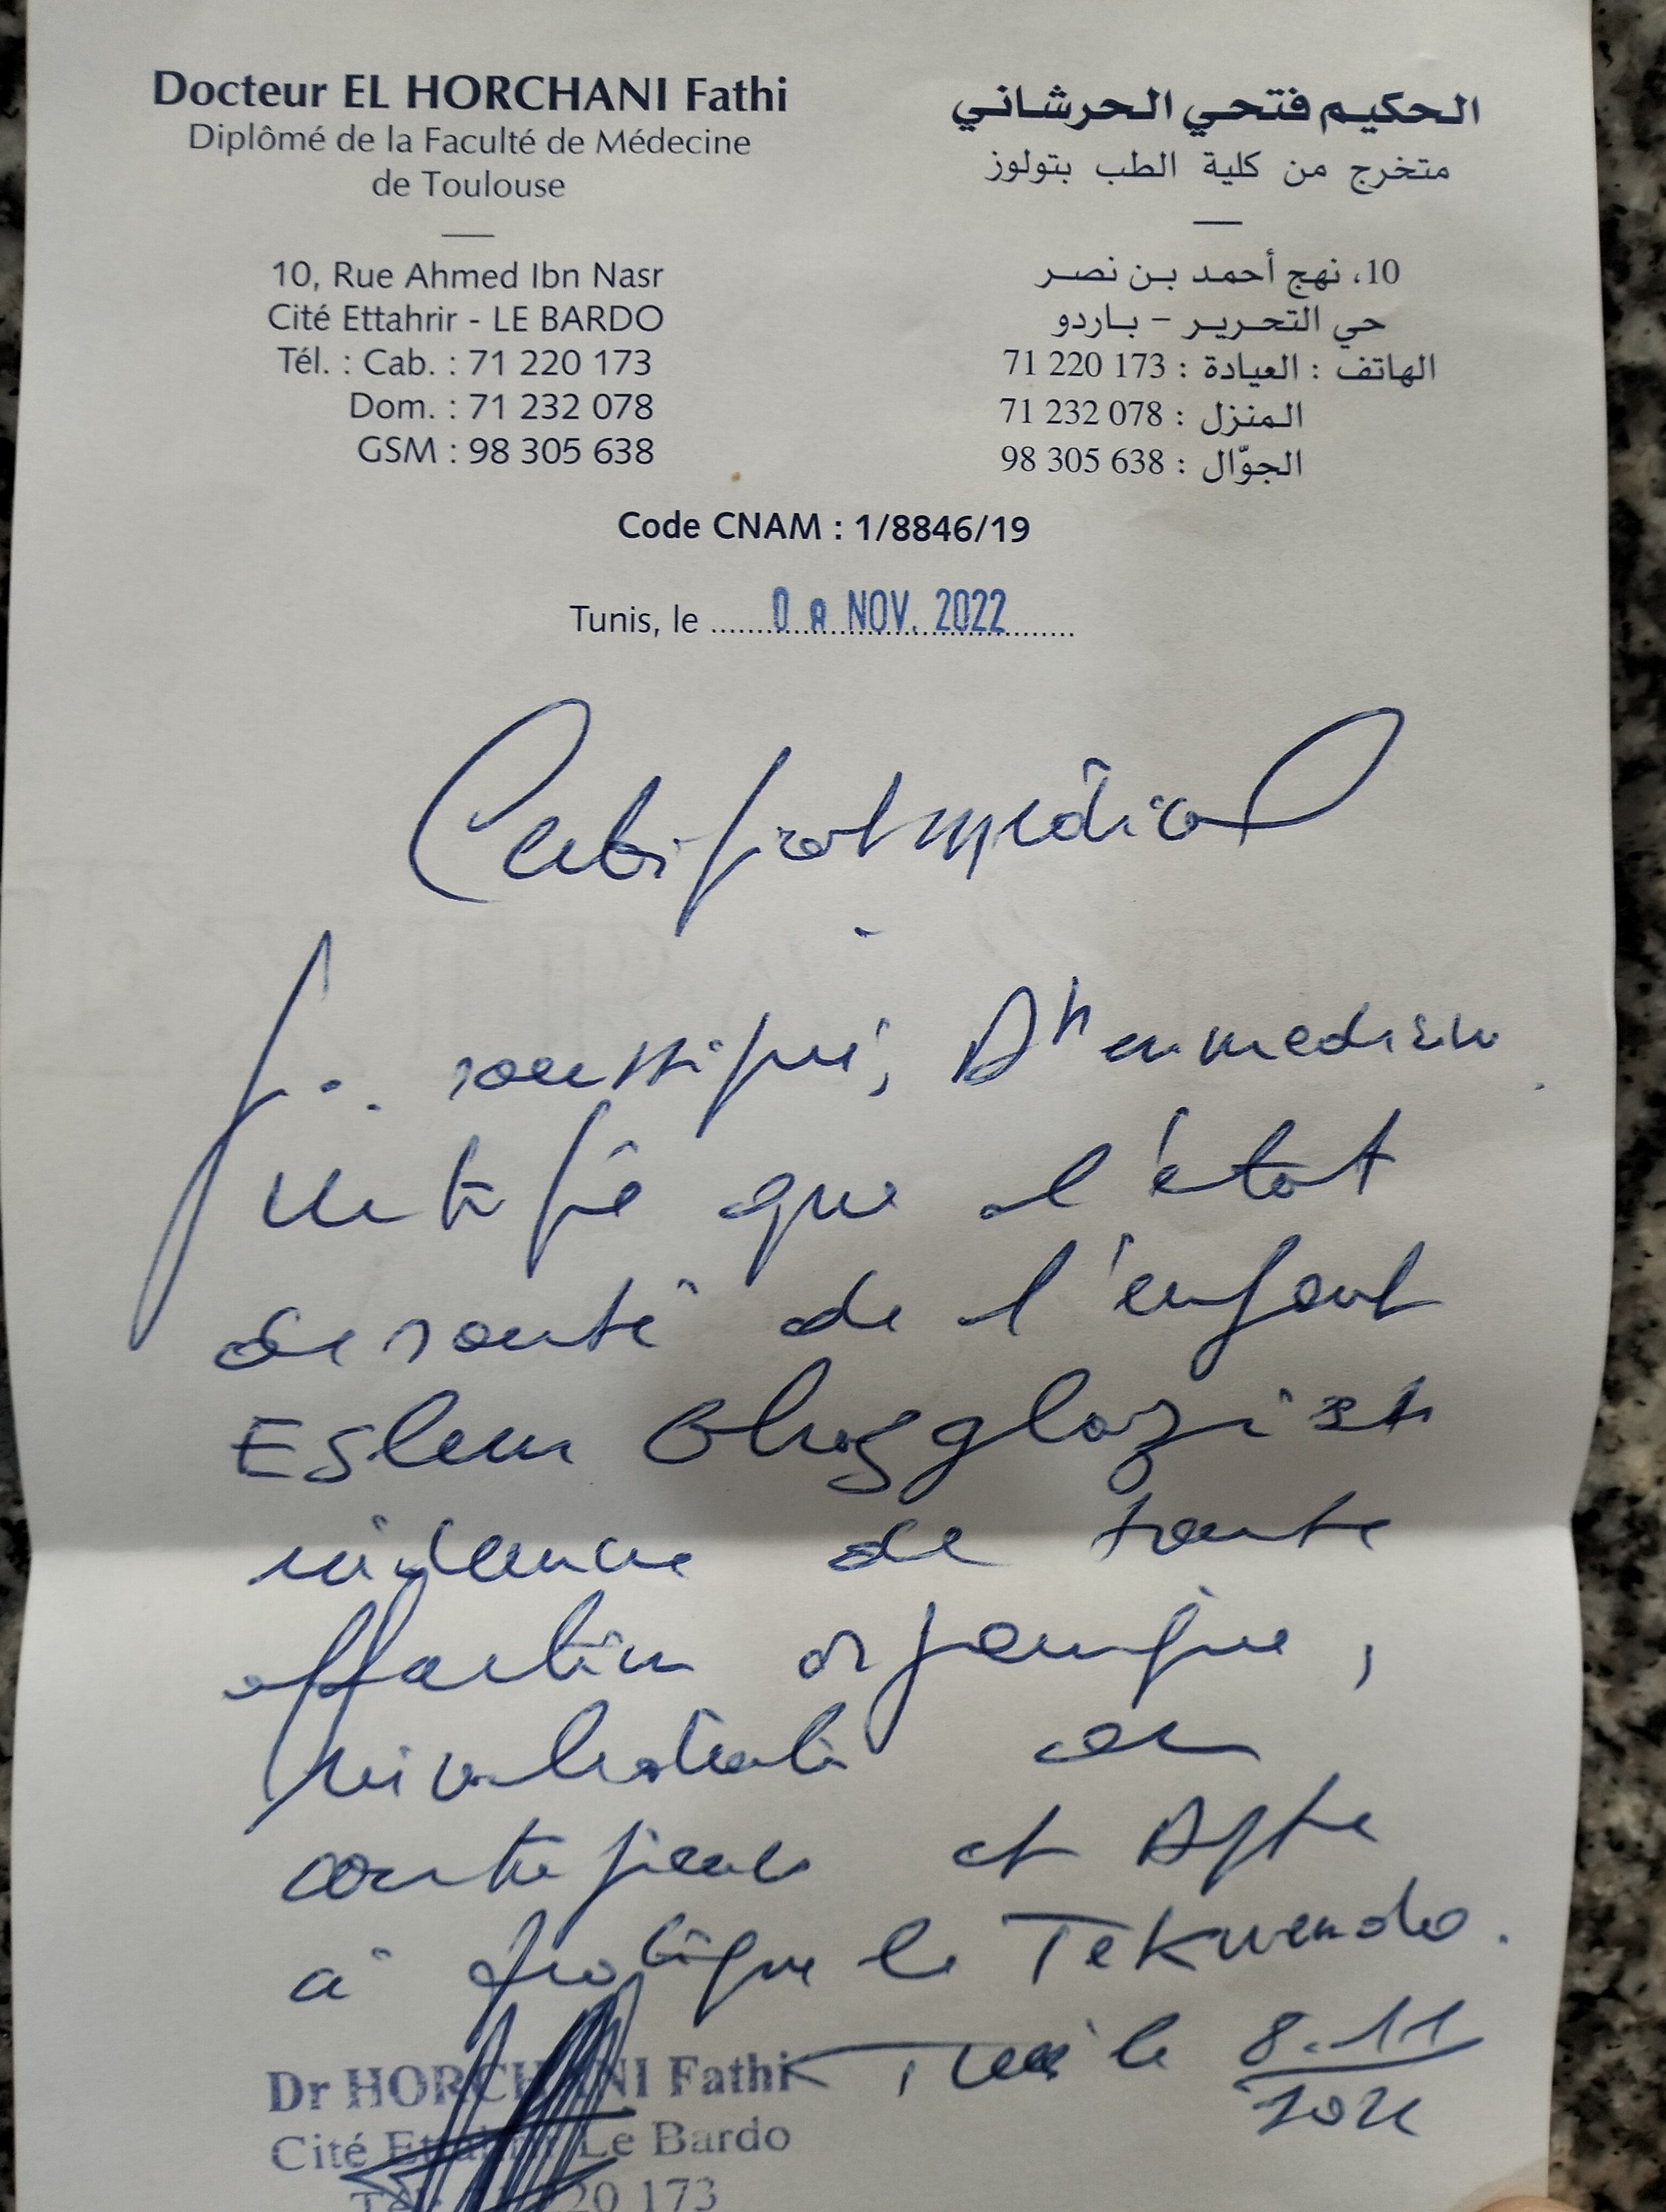 Docteur EL HORCHANI Fathi
Diplômé de la Faculté de Médecine
de Toulouse
10, Rue Ahmed Ibn Nasr
Cité Ettahrir - LE BARDO
Tél. : Cab. : 71 220 173
Dom. : 71 232 078
GSM : 98 305 638
الحكيم فتحي الحرشاني
متخرج من كلية الطب بتولوز
10، نهج أحمد بن نصر
حي التحرير - باردو
الهاتف : العيادة : 173 220 71
المنزل : 078 232 71
الجوّال : 638 305 98
Code CNAM : 1/8846/19
Tunis, le 08 NOV. 2022
Certificat médical
Je soussigné, Dr en médecine
certifie que l'état
de santé de l'enfant
Eslem
de toute
affection organique,
ou
contagieuse et Apte
à pratique le Tekwendo.
Tunis le 8.11
2022
Dr HORCHANI Fathi
Cité Ettahrir Le Bardo
Tél: 71 220 173